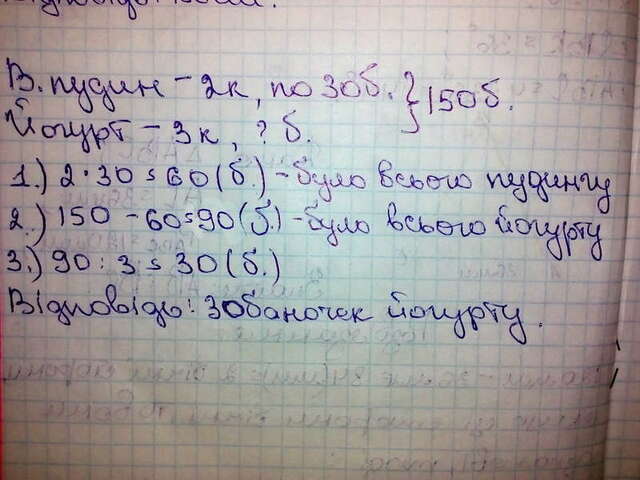 В. пудин – 2к, по 30б. } 150б.
Йогурт – 3к, ? б.
1.) 2·30=60(б.) – було всього пудингу
2.) 150 – 60=90(б.) – було всього йогурту
3.) 90 : 3 = 30(б.)
Відповідь: 30баночек йогурту.